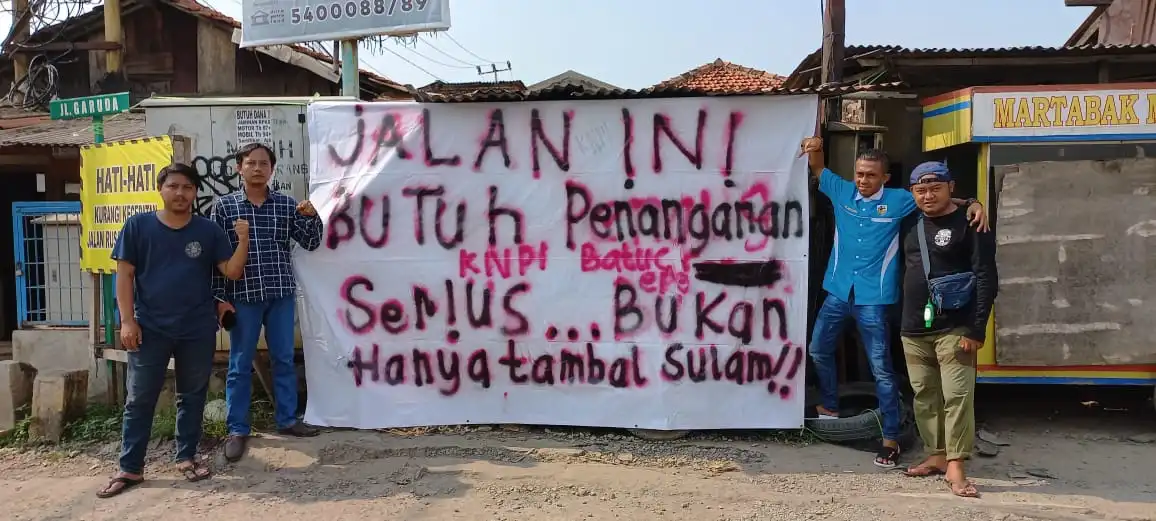 5400088/89
JL.GARUDA
HATI-HATI
KURANGI KECEPATAN
JALAN RUSAK
BUTUH DANA
JALAN INI
BUTUH Penanganan
KNPI Batuc
SeriUS... BUKan
Hanya tambal Sulam!!
MARTABAK M